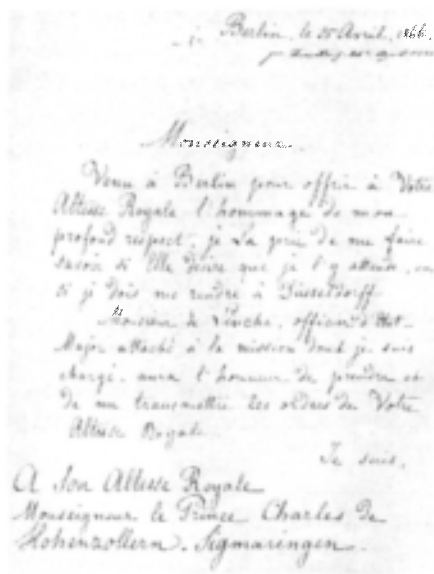 Berlin, le Avril, 1866.
Monseigneur.
Venu à Berlin pour offrir à Votre
Altesse Royale l'hommage de mon
profond respect, je La prie de me faire
savoir si Elle désire que je l'y attende, ou
si je dois me rendre à Düsseldorff.
Monsieur de officier d'Etat-
Major attaché à la mission dont je suis
chargé, aura l'honneur de prendre et
de me transmettre les ordres de Votre
Altesse Royale.
Je suis,
A Son Altesse Royale
Monseigneur le Prince Charles de
Hohenzollern-Sigmaringen.